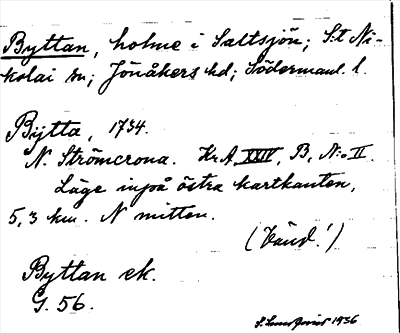 Byttan, holme i Saltsjön; S:t Ni-
kolai sn; Jönåkers hd; Södermanl. l.
Bijtta, 1734.
N. Strömcrona. Kr. A. XXIV, B. N:o II.
Läge inpå östra kartkanten,
5,3 km. N mitten.
(Vänd!)
Byttan ek.
G. 56.
1936